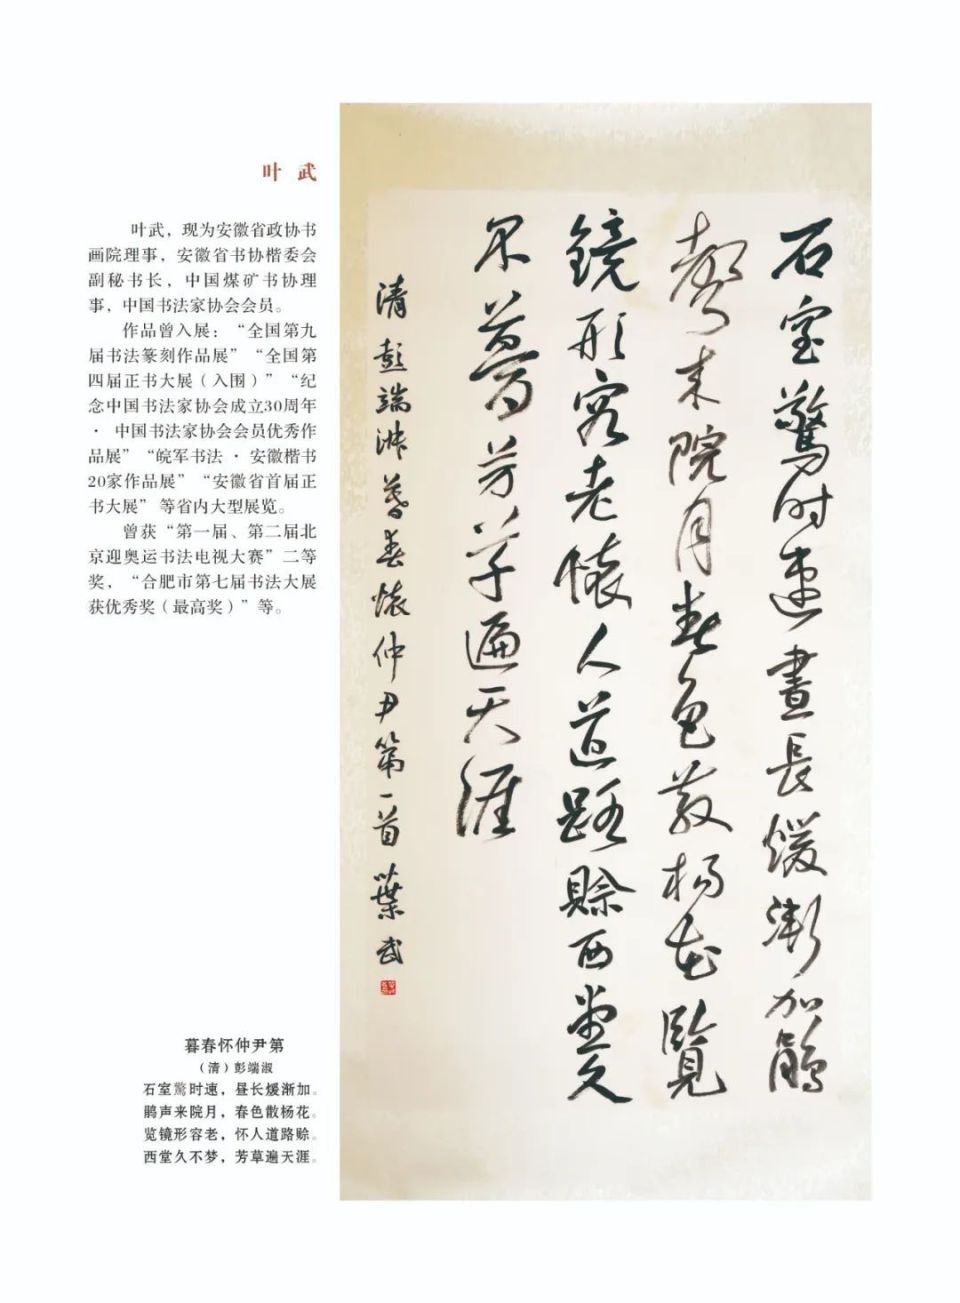 叶 武
叶武，现为安徽省政协书
画院理事，安徽省书协楷委会
副秘书长，中国煤矿书协理
事，中国书法家协会会员。
作品曾入展：“全国第九
届书法篆刻作品展”“全国第
四届正书大展（入围）”“纪
念中国书法家协会成立30周年
· 中国书法家协会会员优秀作
品展”“皖军书法 · 安徽楷书
20家作品展”“安徽省首届正
书大展” 等省内大型展览。
曾获“第一届、第二届北
京迎奥运书法电视大赛”二等
奖，“合肥市第七届书法大展
获优秀奖（最高奖）”等。
暮春怀仲尹第
（清）彭端淑
石室驚时速，昼长煖渐加。
鹃声来院月，春色散杨花。
览镜形容老，怀人道路赊。
西堂久不梦，芳草遍天涯。
石室驚时速晝長煖漸加鵑
聲来院月春色散杨花覽
鏡形容老懷人道路賒西堂久
不夢芳草遍天涯
清彭端淑暮春懷仲尹第一首葉武